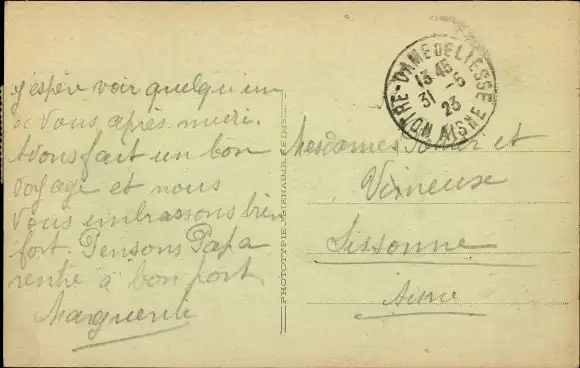 J'espère voir quelqu'un
de Vous après midi.
Avons fait un bon
voyage et nous
Vous embrassons bien
fort. Pensons Papa
rentré à bon port.
Marguerite
PHOTOTYPIE REIMS
NOTRE-DAME DE LIESSE
13 45
31 -5
23
AISNE
Mesdames et
Sissonne
Aisne